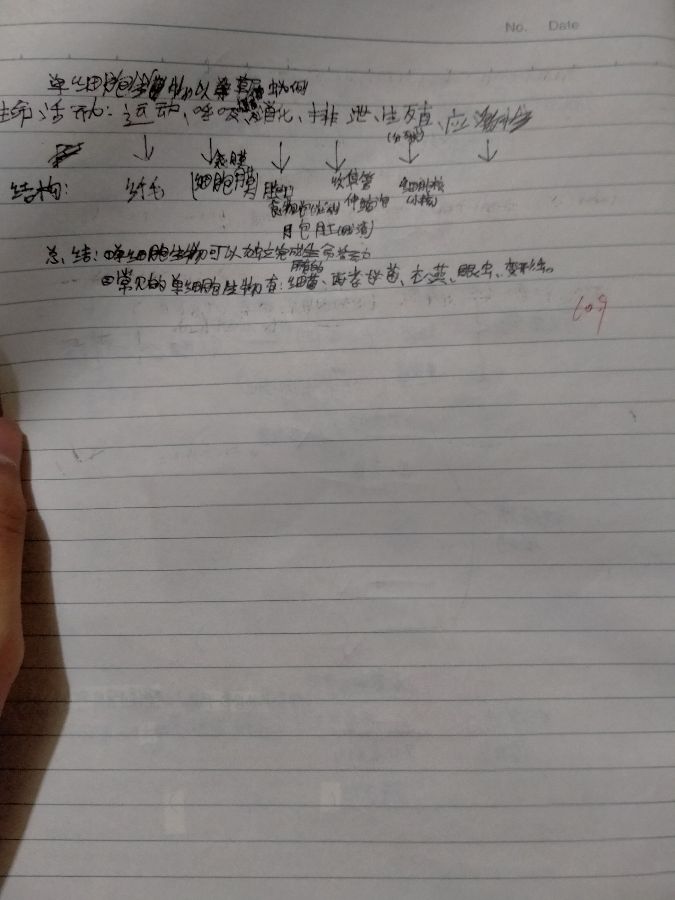 No. Date
单细胞生物以草履虫为例
生命活动:运动、呼吸、消化、排泄、生殖、应激性
(分裂)
表膜
结构: 纤毛 (细胞膜) 收集管 细胞核
伸缩泡
总结:①单细胞生物可以独立完成生命活动
所有的
②常见的单细胞生物有:细菌、酵母菌、衣藻、眼虫、变形虫。